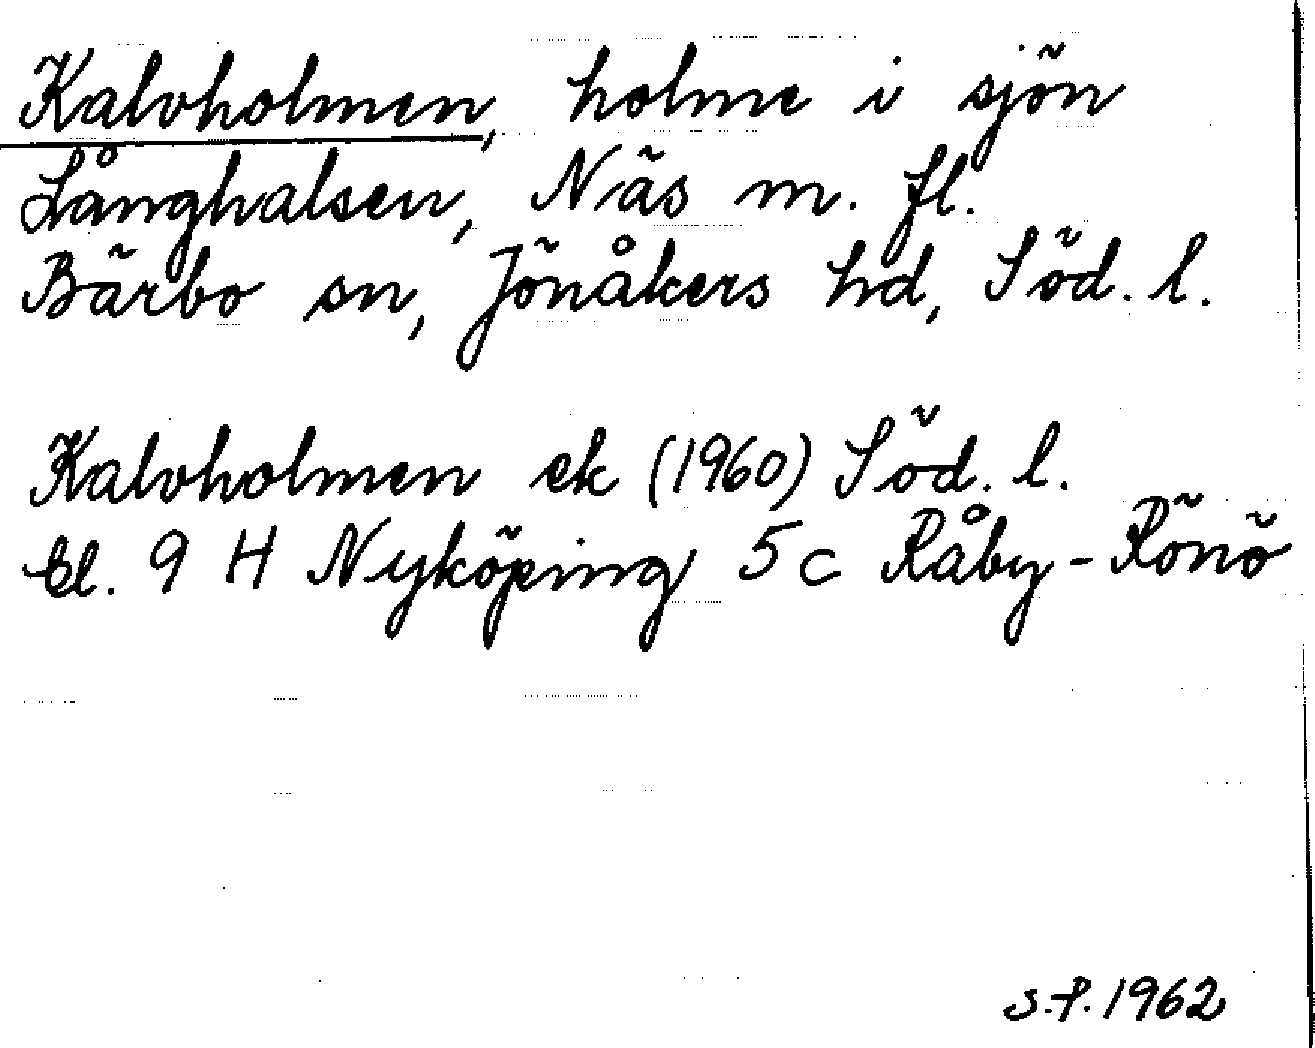 Kalvholmen, holme i sjön
Långhalsen, Näs m. fl.
Bärbo sn, Jönåkers hd, Söd. l.
Kalvholmen ek (1960) Söd. l.
bl. 9 H Nyköping 5c Råby-Rönö
S.P. 1962